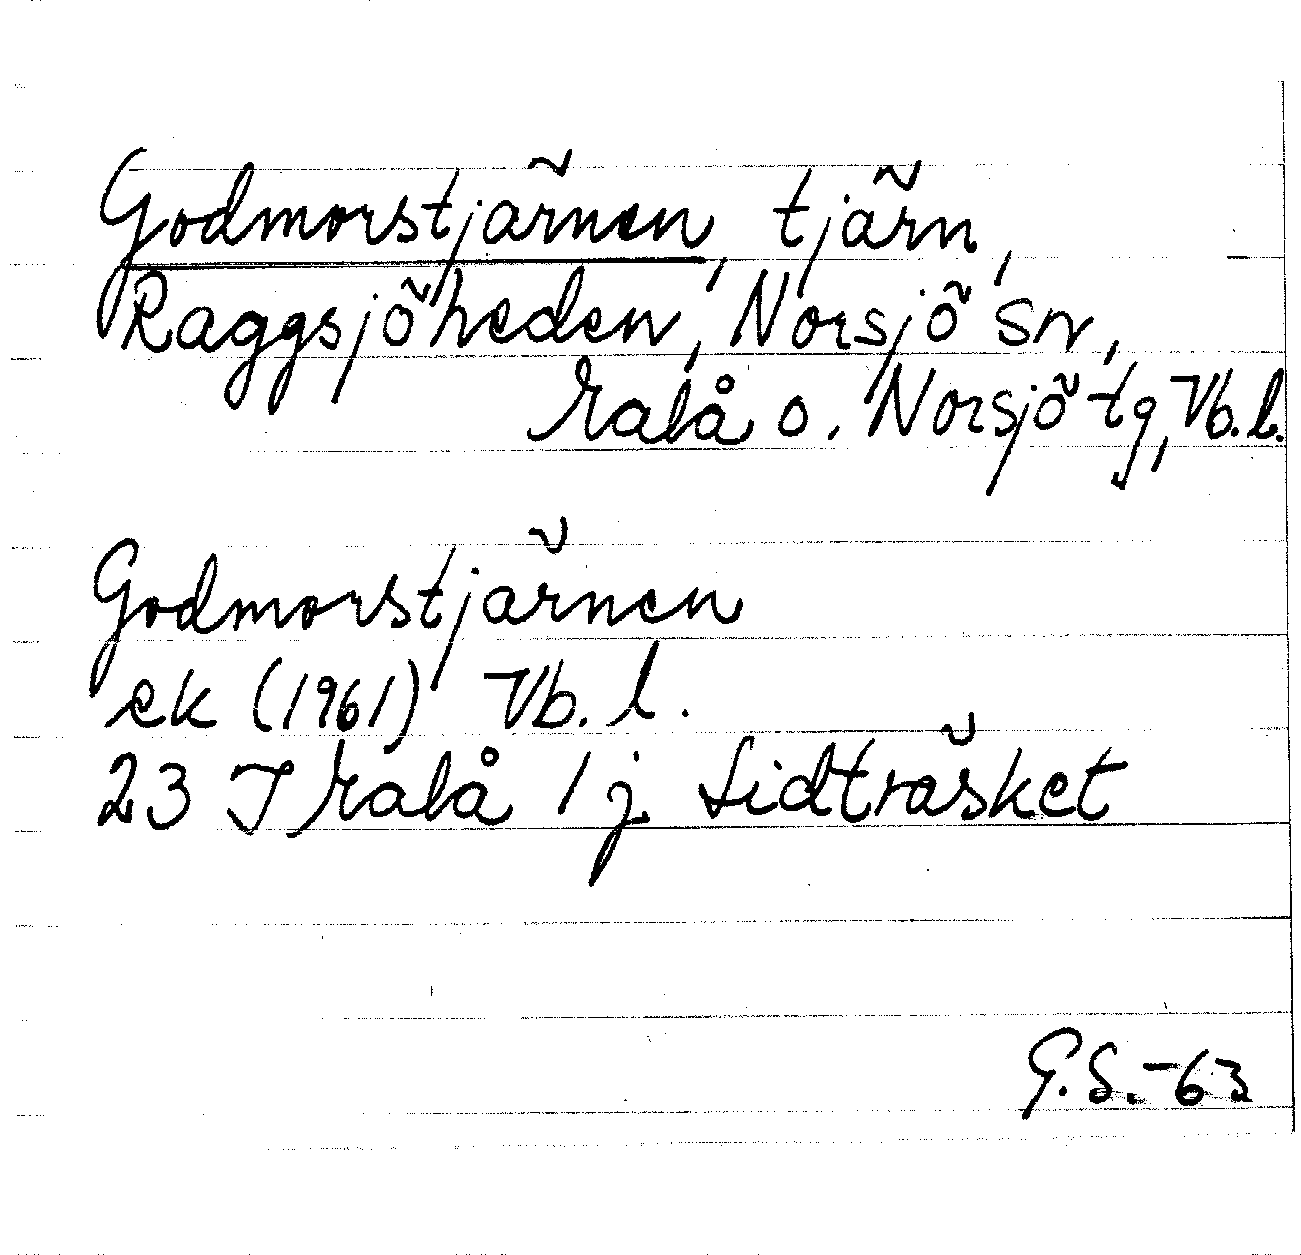 Godmorstjärnen, tjärn,
Raggsjöheden, Norsjö sn,
Malå o. Norsjö tg, Vb. l.
Godmorstjärnen
ek (1961) Vb. l.
23 I Malå 1 j Lidträsket
G.S.-63